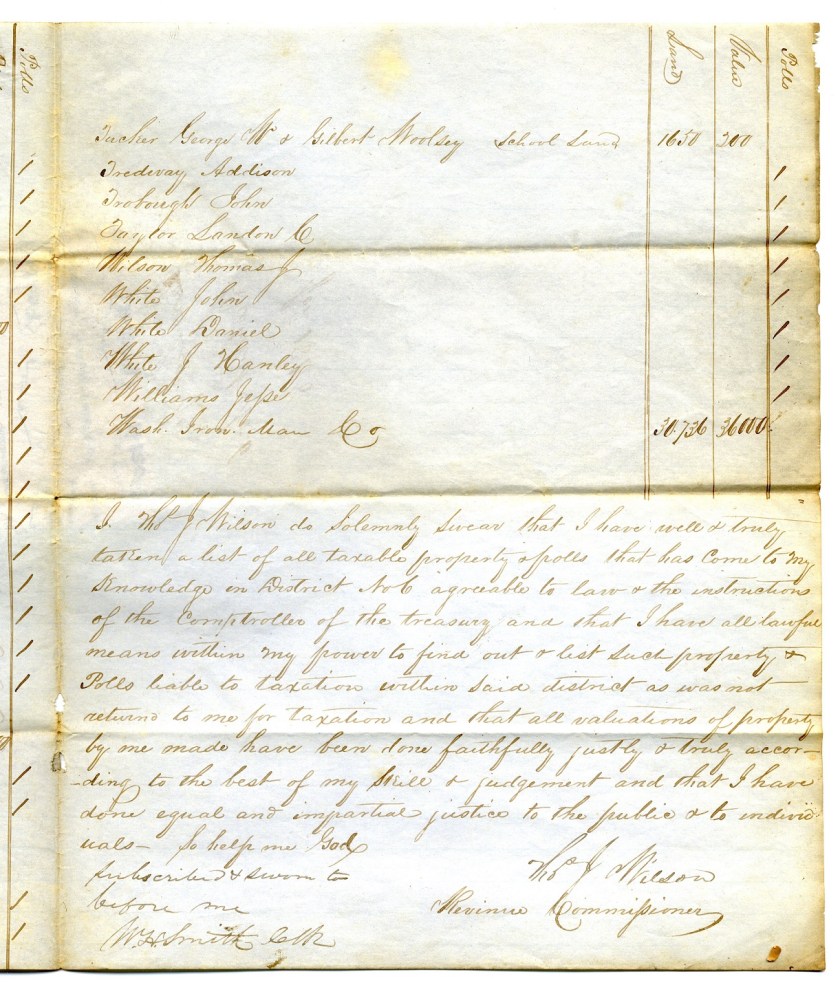 Polls
Land Value Polls
Tucker George W & Gilbert Woolsey School Land 1650 200
Tredway Addison /
Trobough John /
Taylor Landon C /
Wilson Thomas J /
White John /
White Daniel /
White J Hanley /
Williams Jesse /
Wash. Iron. Man Co 30.736 36000
I. Thos J Wilson do Solemnly Swear that I have well & truly
taken a list of all taxable property & polls that has Come to my
Knowledge in District No 6 agreeable to law & the instructions
of the Comptroller of the treasury and that I have all lawful
means within my power to find out & list such property &
Polls liable to taxation within said district as was not
returnd to me for taxation and that all valuations of property
by me made have been done faithfully justly & truly accor-
-ding to the best of my Skill & judgement and that I have
done equal and impartial justice to the public & to individ
uals- So help me God
Thos J Wilson
Subscribed & sworn to
before me
Revinue Commissioner
W.H. Smith Clk